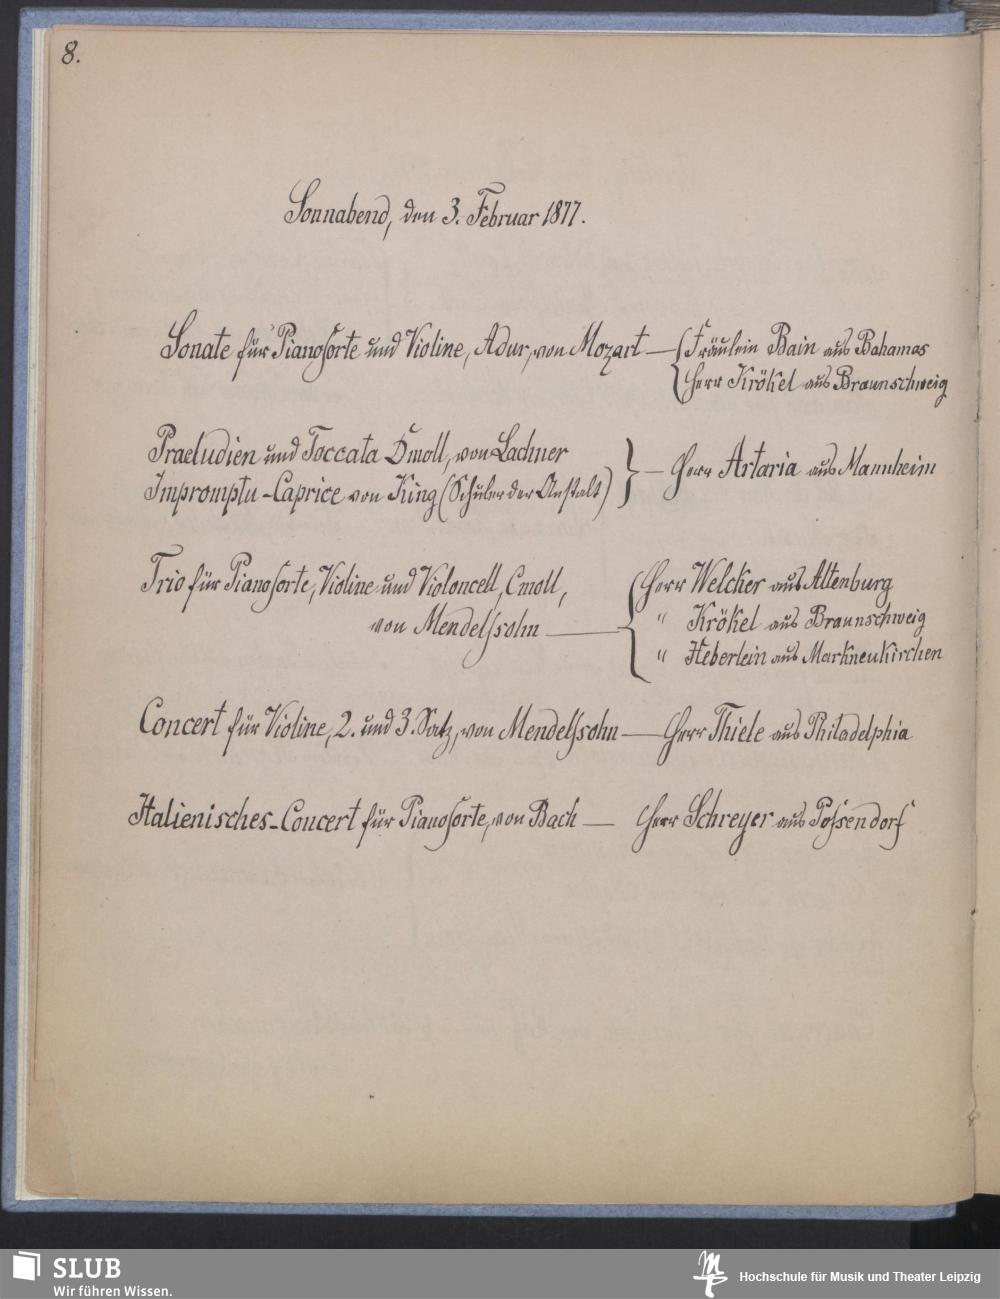 8.
Sonnabend, den 3. Februar 1877.
Sonate für Pianoforte und Violine, Adur, von Mozart — Fräulein Bain aus Bahamas
Herr Krökel aus Braunschweig
Praeludien und Toccata Dmoll, von Lachner
Impromptu-Caprice von King (Schüler der Anstalt) } — Herr Artaria aus Mannheim
Trio für Pianoforte, Violine und Violoncell, Cmoll,
von Mendelssohn — Herr Welcker aus Altenburg
" Krökel aus Braunschweig
" Heberlein aus Markneukirchen
Concert für Violine, 2. und 3. Satz, von Mendelssohn — Herr Thiele aus Philadelphia
Italienisches-Concert für Pianoforte, von Bach — Herr Schreyer aus Possendorf
SLUB
Wir führen Wissen.
Hochschule für Musik und Theater Leipzig